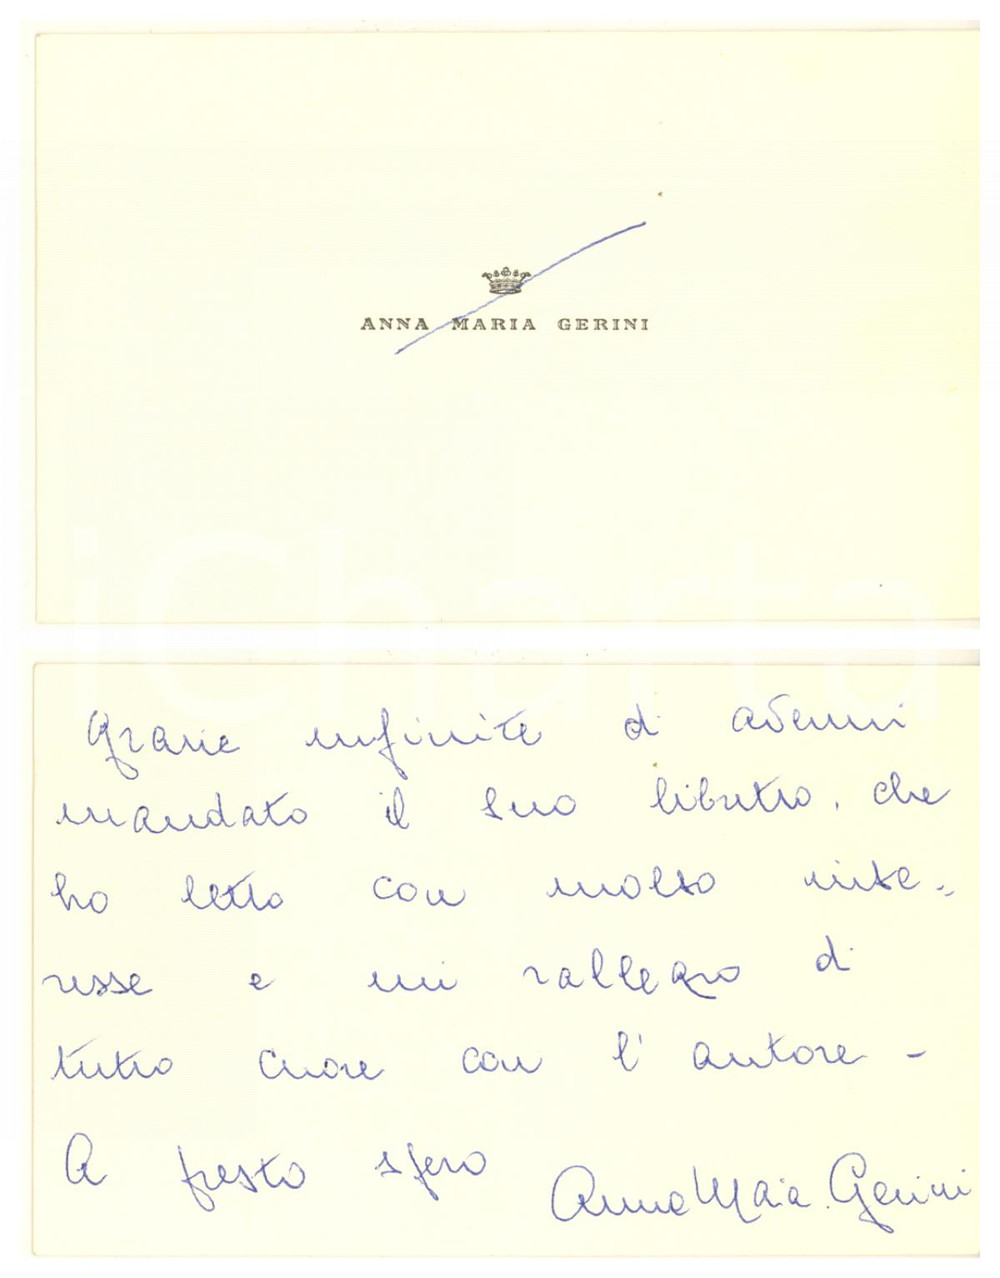 ANNA MARIA GERINI
iCharta
Grazie infinite di avermi
mandato il suo libretto, che
ho letto con molto inte=
resse e mi rallegro di
tutto cuore con l'autore -
A presto spero Anna Maria Gerini